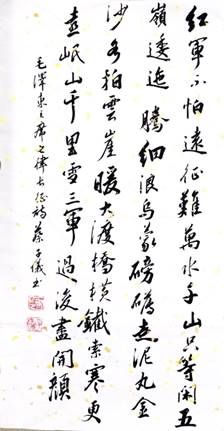 紅軍不怕遠征難萬水千山只等閑五
嶺逶迤騰細浪烏蒙磅礴走泥丸金
沙水拍雲崖暖大渡橋橫鐵索寒更
喜岷山千里雪三軍過後盡開顏
毛澤東主席七律长征詩蔡子儀书